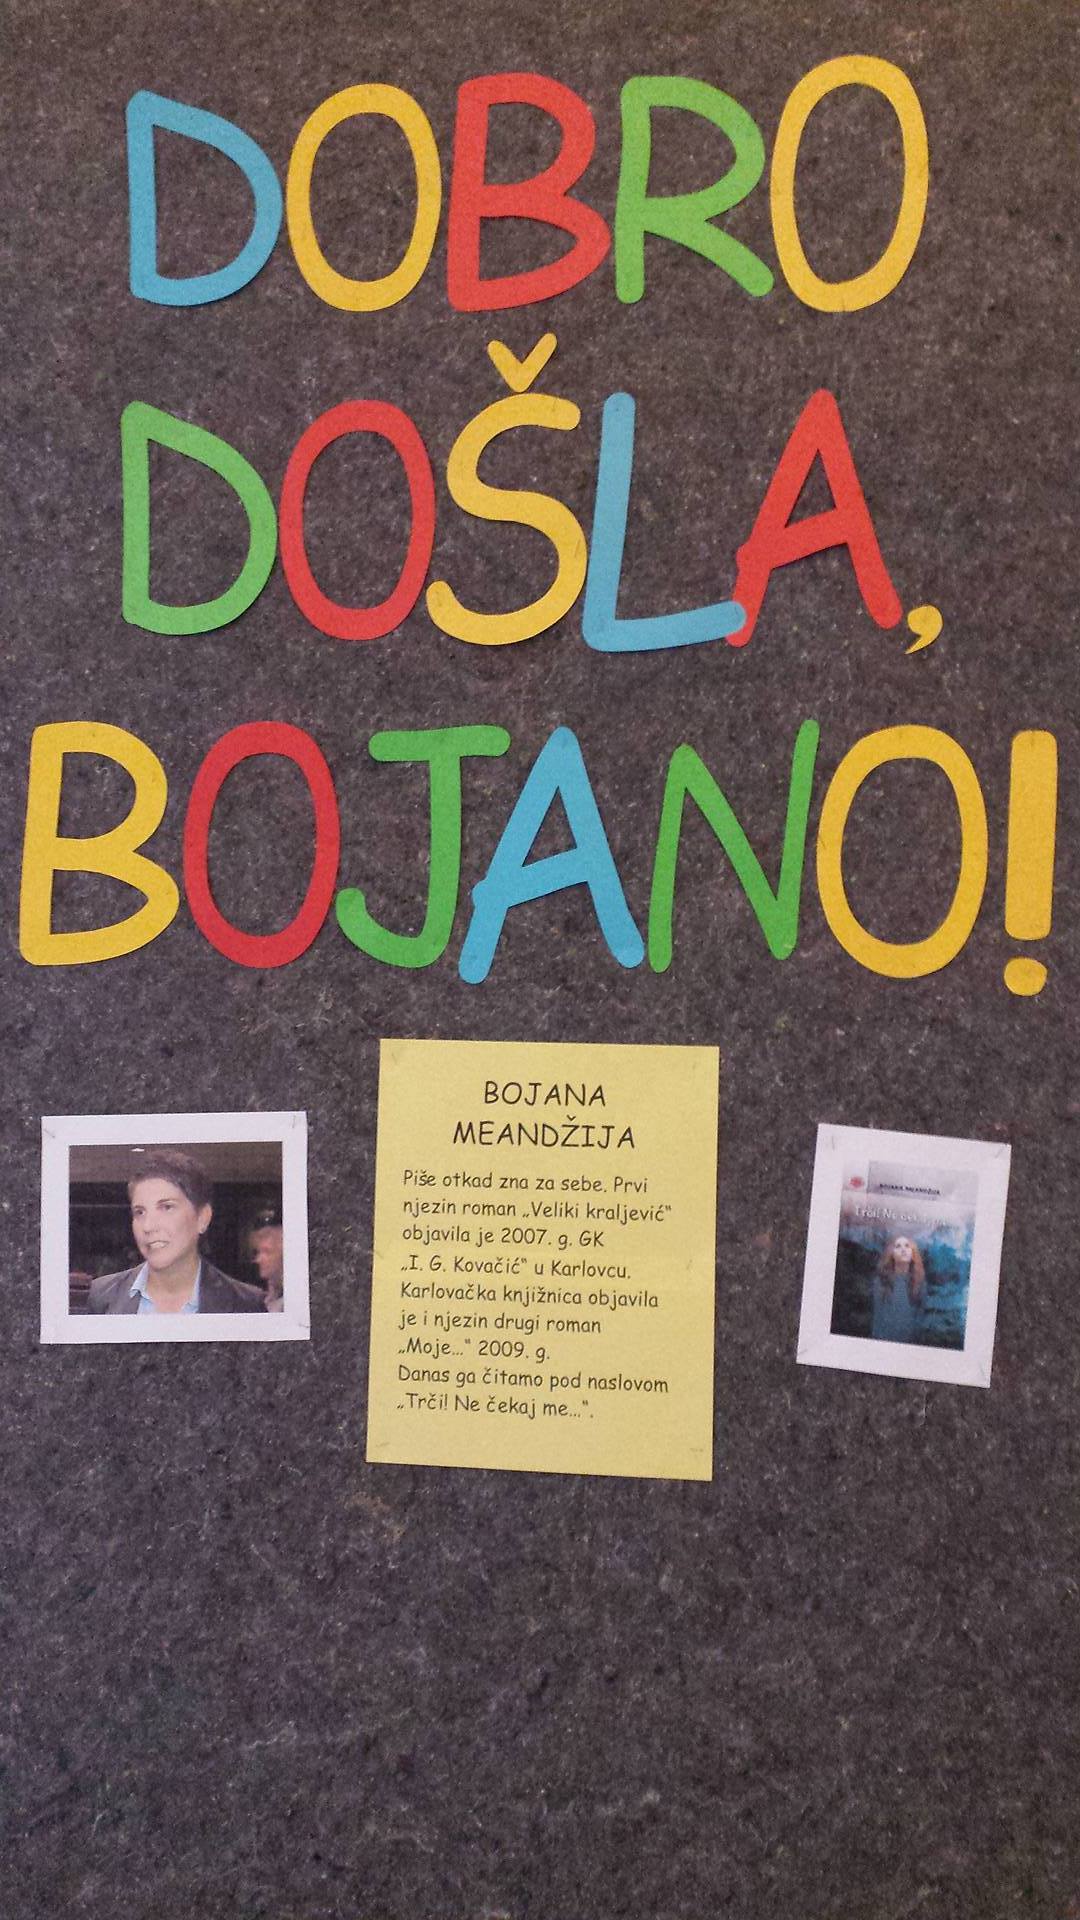 DOBRO
DOŠLA,
BOJANO!
BOJANA
MEANDŽIJA
Piše otkad zna za sebe. Prvi
njezin roman „Veliki kraljević“
objavila je 2007. g. GK
„I. G. Kovačić“ u Karlovcu.
Karlovačka knjižnica objavila
je i njezin drugi roman
„Moje...“ 2009. g.
Danas ga čitamo pod naslovom
„Trči! Ne čekaj me...“.
BOJANA MEANDŽIJA
Trči! Ne čekaj